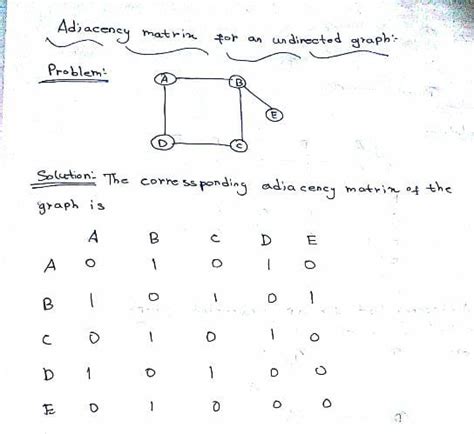 Adjacency matrix for an undirected graph:-
Problem:-
A
B
E
D
C
Solution:- The corressponding adjacency matrix of the
graph is
A B C D E
A 0 1 0 1 0
B 1 0 1 0 1
C 0 1 0 1 0
D 1 0 1 0 0
E 0 1 0 0 0